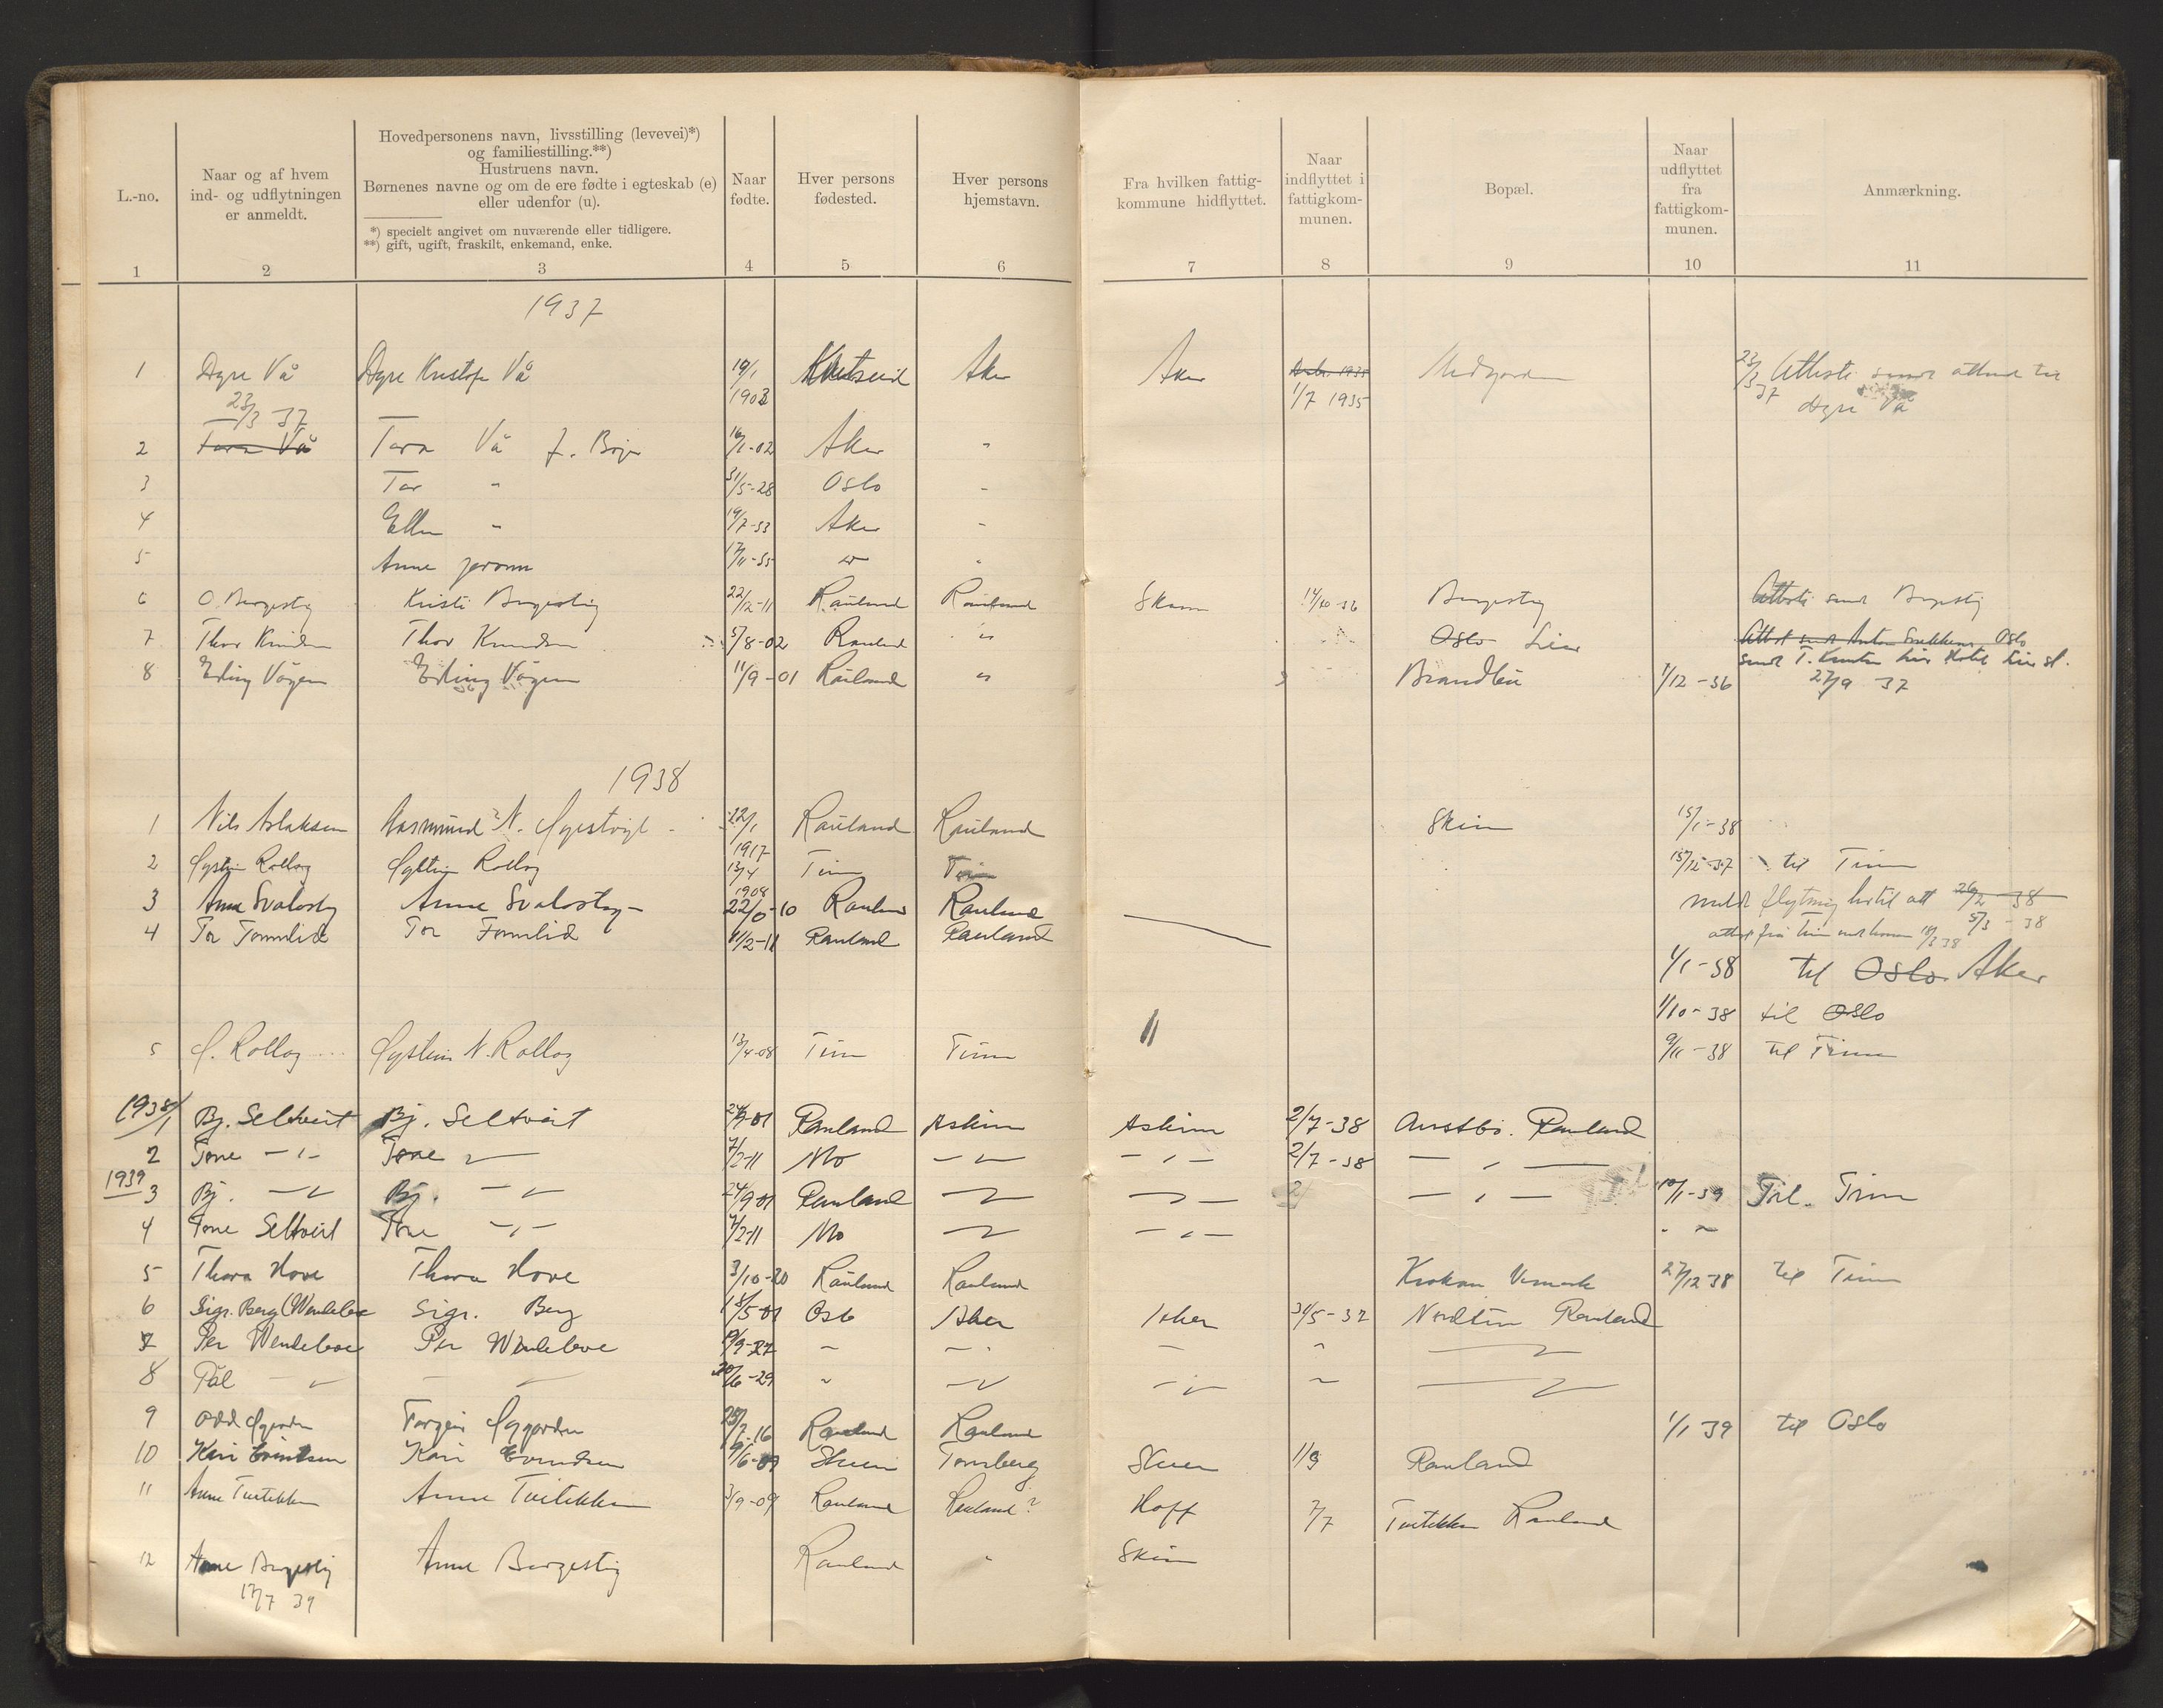 L.-no.
Naar og af hvem
ind- og udflytningen
er anmeldt.
Hovedpersonens navn, livsstilling (levevei)*)
og familiestilling.**)
Hustruens navn.
Børnenes navne og om de ere fødte i egteskab (e)
eller udenfor (u).
*) specielt angivet om nuværende eller tidligere.
**) gift, ugift, fraskilt, enkemand, enke.
Naar
fødte.
Hver persons
fødested.
Hver persons
hjemstavn.
Fra hvilken fattig-
kommune hidflyttet.
Naar
indflyttet i
fattigkom-
munen.
Bopæl.
Naar
udflyttet
fra
fattigkom-
munen.
Anmærkning.
1 2 3 4 5 6 7 8 9 10 11
1937
1 Dyre Vå Dyre Kristofer Vå 19/1 1903 Kviteseid Aker Aker 1/7 1935 23/3 37 til
23/3 37 Dyre Vå
2 Tora Vå Tora Vå f. 16/1-02 Aker "
3 Tor " 31/5-28 Oslo "
4 Ellen " 19/7-33 Aker "
5 Anne 17/11-35 "
6 O. Bergestig Kristi Bergestig 22/12-11 Rauland Rauland 14/10-36 Bergestig Attest sendt Bergestig
7 Thor Knudsen Thor Knudsen 5/8-02 Rauland " Oslo Lier Oslo
8 Erling Vågen Erling Vågen 11/9-01 Rauland " 1/12-36 sendt T.
27/9 37
1938
1 Nils Aslaksen Aasmund N. 22/1 1917 Rauland Rauland Skien 15/1-38
2 Øystein Rollag Øystein Rollag 13/4 1908 Tinn Tinn 15/12-37 til Tinn
3 Anne Svalastog Anne Svalastog 22/ -10 Rauland Rauland meldt flytning hertil att 26/2-38
4 Tor Tommlid Tor Tommlid 11/2-11 Rauland Rauland 5/3-38
1/1-38 til Oslo Aker
1/10-38 til Oslo
5 Ø. Rollag Øystein N. Rollag 13/4-08 Tinn Tinn 9/11-38 til Tinn
1938/1 Bj. Seltveit Bj. Seltveit 24/9-01 Rauland Askim Askim 2/7-38 Austbø. Rauland
2 Tone -"- Tone -"- 7/2-11 Mo -"- -"- 2/7-38 -"-
1939
3 Bj. -"- Bj. -"- 24/9-01 Rauland -"- -"- -"- 10/1-39 Til Tinn
4 Tone Seltveit Tone -"- 7/2-11 Mo -"- -"- -"-
5 Thora Hove Thora Hove 3/10-20 Rauland Rauland Krokan Vemork 27/12 38 til Tinn
6 Sigr. Berg (Wendelboe Sigr. Berg /5-01 Oslo Aker Aker 31/5-32 Nordtun Rauland
7 Per Wendelboe Per Wendelboe /9-27 " -"- - " -"-
8 Pål -"- -"- /6-29 " -"- -"- " -"-
9 Odd Øygarden Torgeir Øygarden /7-16 Rauland Rauland 1/1 39 til Oslo
10 Kari Evendsen Kari Evendsen /6-09 Skien Tønsberg Skien 1/9 Rauland
11 Anne Tveitekken Anne Tveitekken 3/9-09 Rauland Rauland? Hoff 7/7 Tveitekken Rauland
12 Anne Bergestig Anne Bergestig Rauland " Skien
17/7 39